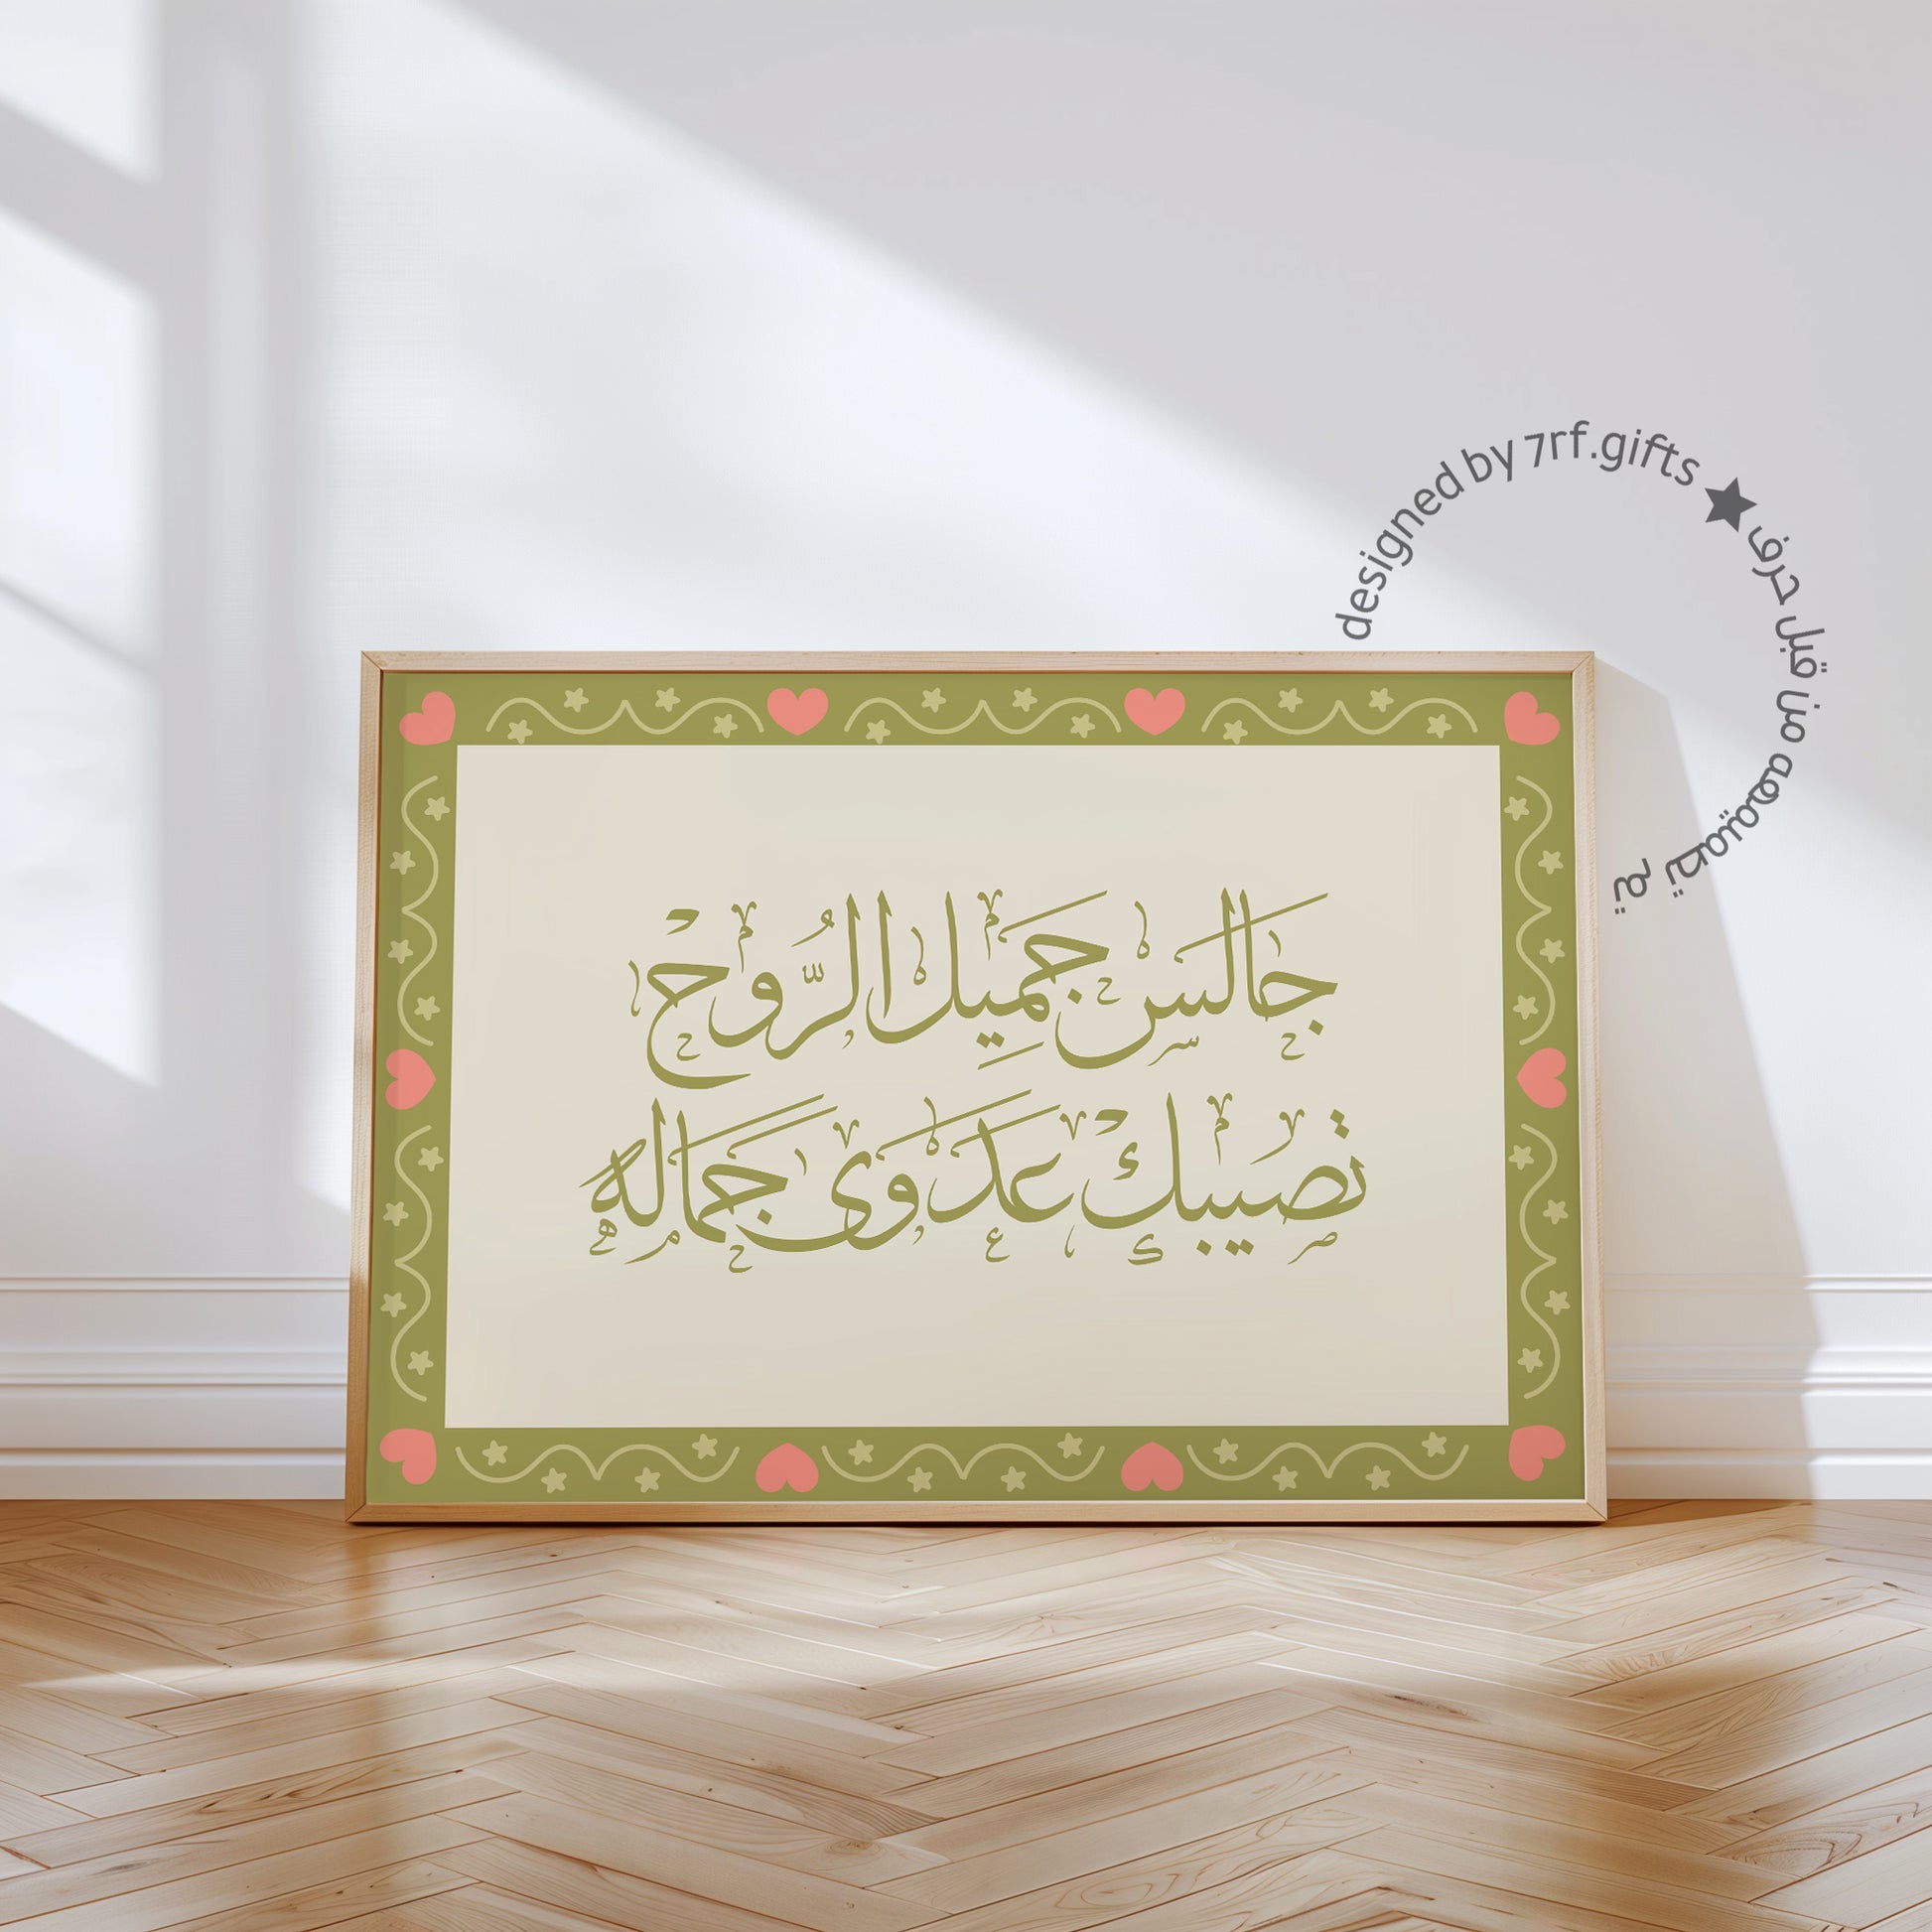 designed by 7rf.gifts ★ تم تصميمه من قبل حرف
جَالِسْ جَمِيلَ الرُّوحْ
تُصِيبكْ عَدوَى جَمَالهْ